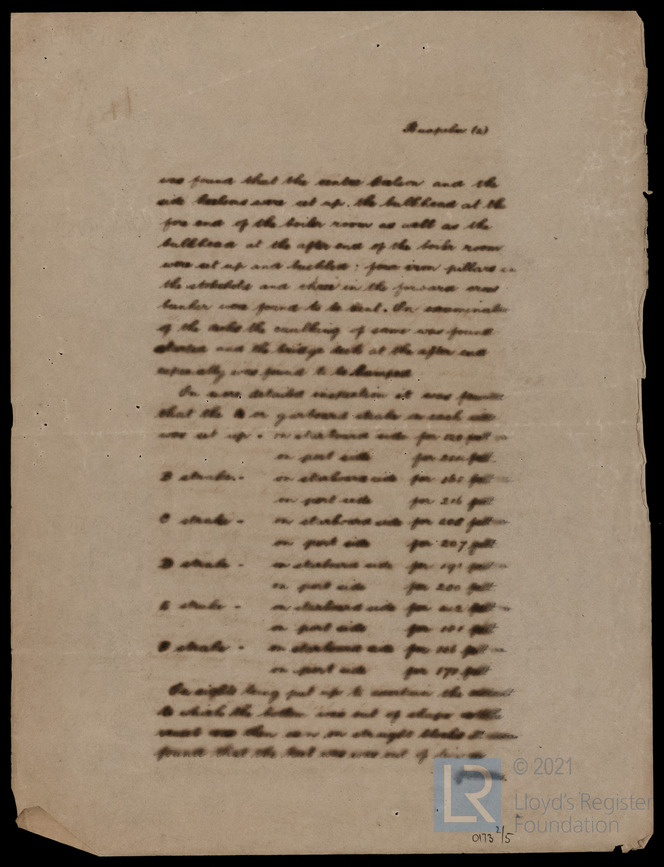 (2)
was found that the centre keelson and the
side keelsons were set up, the bulkhead at the
fore end of the boiler room as well as the
bulkhead at the after end of the boiler room
were set up and buckled; four iron pillars in
the stokehold and three in the forward cross
bunker were found to be bent. On examination
of the decks the caulking of same was found
started and the bridge deck at the after end
especially was found to be
On more detailed inspection it was found
that the A or garboard strake on each side
was set up - on starboard side for 120 feet
on port side for feet
B strake - on starboard side for feet
on port side for 216 feet
C strake - on starboard side for 208 feet
on port side for 207 feet
D strake - on starboard side for 191 feet
on port side for 200 feet
E strake - on starboard side for feet
on port side for feet
F strake - on starboard side for feet
on port side for 170 feet
On sights being put up to ascertain the extent
to which the bottom was out of shape
vessel was then on straight blocks it was
found that the keel was out of
© 2021
LR
Lloyd's Register
Foundation
0173 2/5